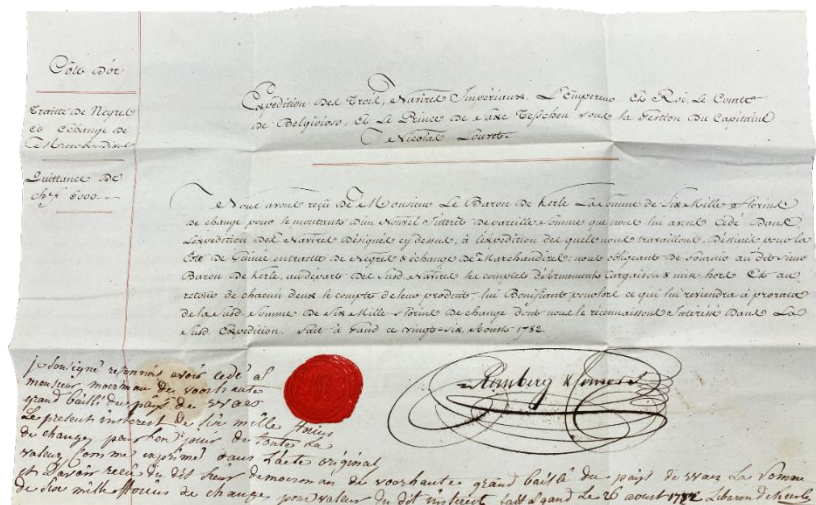 Côte D'or
Traitte de Negres
et échange de
Marchandise
Quittance de
chf 6000 —
Expédition des Trois Navires Impériaux, L'empereur Et Roi, Le Comte
de Belgioioso, Et Le Prince de Saxe Teschen sous la Gestion du Capitaine
Nicolas Louret.
Nous avons reçu de Monsieur Le Baron de Kerle La Somme de Six Mille florins
de change pour le montant d'un Nouvel Interêt de pareille Somme que nous lui avons Cédé Dans
L'expédition des Navires Désignés cy dessus, à l'expédition des quels nous travaillons, Destinés pour la
Côte de Guinée en traitte de Negres & échange de Marchandises; nous obligeant de fournir au dit Sieur
Baron de Kerle, au départ des Susd. Navires les comptes d'armement Cargaison & mise hors Et au
retour de chacun deux le compte de leur produit, lui Bonifiant pour lors ce qui lui reviendra à prorata
de la Susd. Somme de Six Mille florins de change dont nous le reconnaissons Interessé Dans La
Susd. Expédition. Fait à Gand ce vingt-Six Aousts 1782
Romberg & Consors
je Soussigné reconnois avoir cedé a
monsieur moerman de voorhaute
grand bailli du pays de waes
Le present interest de Six mille florins
de change, pour en jouir de toutte la
valeur comme exprimé dans l'acte original
et d'avoir recu du dit Sieur demoerman de voorhaute grand bailli du païs de waes La Somme
de Six mille florins de change pour valeur du dit interest fait a gand Le 26 aoust 1782 Le baron d